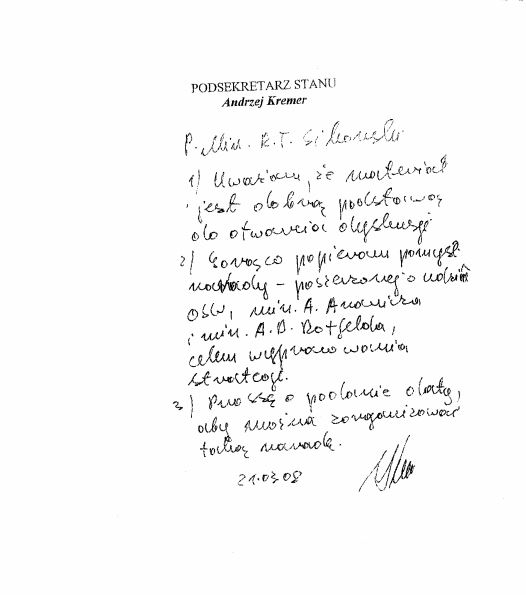 PODSEKRETARZ STANU
Andrzej Kremer
P. Min. R.T. Sikorski
1) Uważam, że materiał
jest dobrą podstawą
do otwarcia dyskusji
2) Gorąco popieram pomysł
narady – poszerzonej o udział
OSW, min. A. Ananicza
i min. A.D. Rotfelda,
celem wypracowania
strategii.
3) Proszę o podanie daty,
aby można zorganizować
taką naradę.
21.03.08